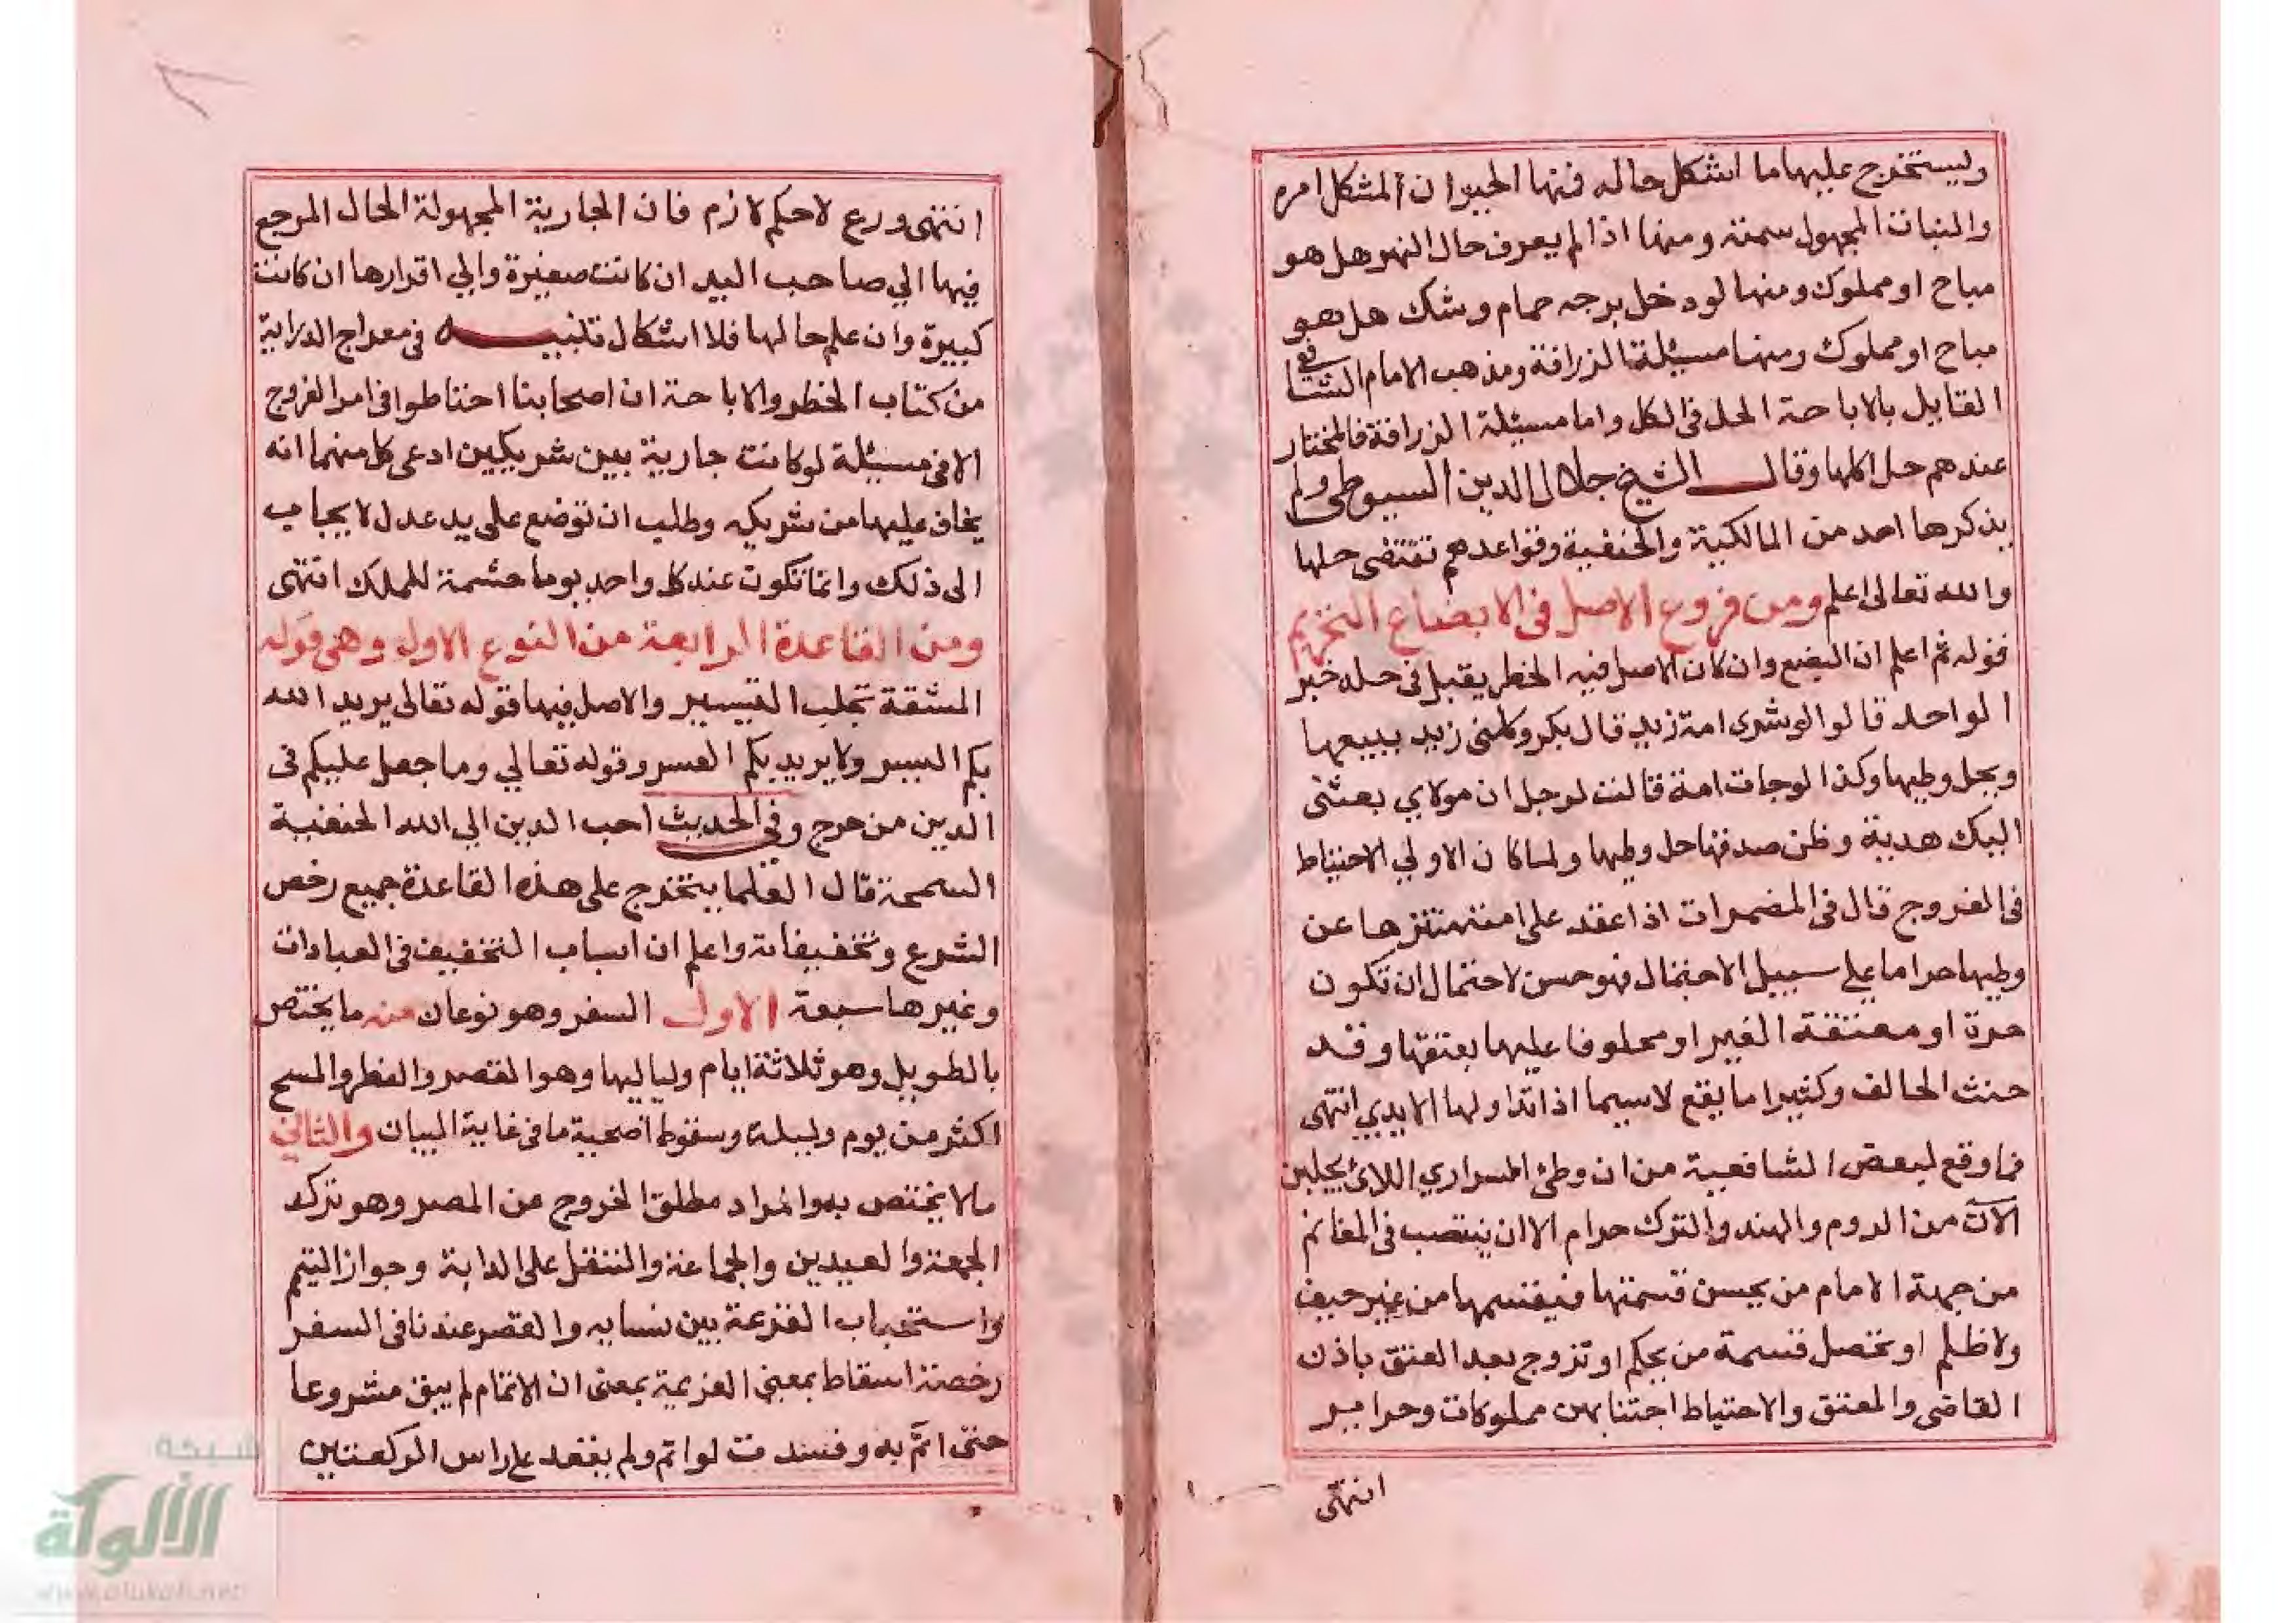 وليستخرج عليها ما اشكل حاله فمنها الحيوان المشكل امره
والنبات المجهول سمته ومنها اذا لم يعرف حال النهر هل هو
مباح او مملوك ومنها لو دخل برجه حمام وشك هل هو
مباح او مملوك ومنها مسيئلة الزرافة ومذهب الامام الشافعي
القايل بالاباحة الحل في الكل واما مسيئلة الزرافة فالمختار
عندهم حل اكلها وقال الشيخ جلال الدين السيوطي ولم
يذكرها احد من المالكية والحنفية وقواعدهم تقتضى حلها
والله تعالى اعلم ومن فروع الاصل في الابضاع التحريم
قوله ثم اعلم ان البضع وان كان الاصل فيه الحظر يقبل في حله خبر
الواحد قالوا لو شرى امة زيد قال بكر وكلنى زيد ببيعها
ويحل وطيها وكذا لو جات امة قالت لرجل ان مولاي بعثنى
اليك هدية وظن صدقها حل وطيها ولما كان الاولي الاحتياط
في الفروج قال في المضمرات اذا عقد على امته متنزها عن
وطيها حراما علي سبيل الاحتمال فهو حسن لاحتمال ان تكون
حرة او معتقة الغير او محلوفا عليها بعتقها وقد
حنث الحالف وكثيرا ما يقع لاسيما اذا تداولها الايدي انتهى
فما وقع لبعض الشافعية من ان وطئ السراري اللائ يجلبن
الآن من الروم والهند والترك حرام الا ان ينتصب في المغانم
من جهة الامام من يحسن قسمتها فيقسمها من غير حيف
ولا ظلم او تحصل قسمة من يحكم او تزوج بعد العتق باذن
القاضى والمعتق والاحتياط اجتنابهن مملوكات وحراير
انتهى
انتهى ورع لا حكم لازم فان الجارية المجهولة الحال المرجع
فيها الي صاحب اليد ان كانت صغيرة والي اقرارها ان كانت
كبيرة وان علم حالها فلا اشكال تنبيه في معراج الدراية
من كتاب الحظر والاباحة ان اصحابنا احتاطوا في امر الفروج
الا في مسيئلة لو كانت جارية بين شريكين ادعى كل منهما انه
يخاف عليها من شريكه وطلب ان توضع على يد عدل لا يجاب
الى ذلك وانما تكون عند كل واحد يوما حشمة للملك انتهى
ومن القاعدة الرابعة من النوع الاول وهي قوله
المشقة تجلب التيسير والاصل فيها قوله تعالى يريد الله
بكم اليسر ولا يريد بكم العسر وقوله تعالي وما جعل عليكم في
الدين من حرج وفي الحديث احب الدين الي الله الحنفية
السمحة قال العلما يتخرج على هذه القاعدة جميع رخص
الشرع وتخفيفاته واعلم ان اسباب التخفيف في العبادات
وغيرها سبعة الاول السفر وهو نوعان منه ما يختص
بالطويل وهو ثلاثة ايام ولياليها وهو القصر والفطر والمسح
اكثر من يوم وليلة وسقوط اضحية ما في غاية البيان والثاني
ما لا يختص به والمراد مطلق الخروج عن المصر وهو ترك
الجمعة والعيدين والجماعة والتنفل على الدابة وجواز التيمم
واستحباب القرعة بين نسايه والقصر عندنا في السفر
رخصة اسقاط بمعنى العزيمة بمعنى ان الاتمام لم يبق مشروعا
حتى اثم به وفسدت لو اتم ولم يقعد على راس الركعتين
شبكة
الألوكة
www.alukah.net